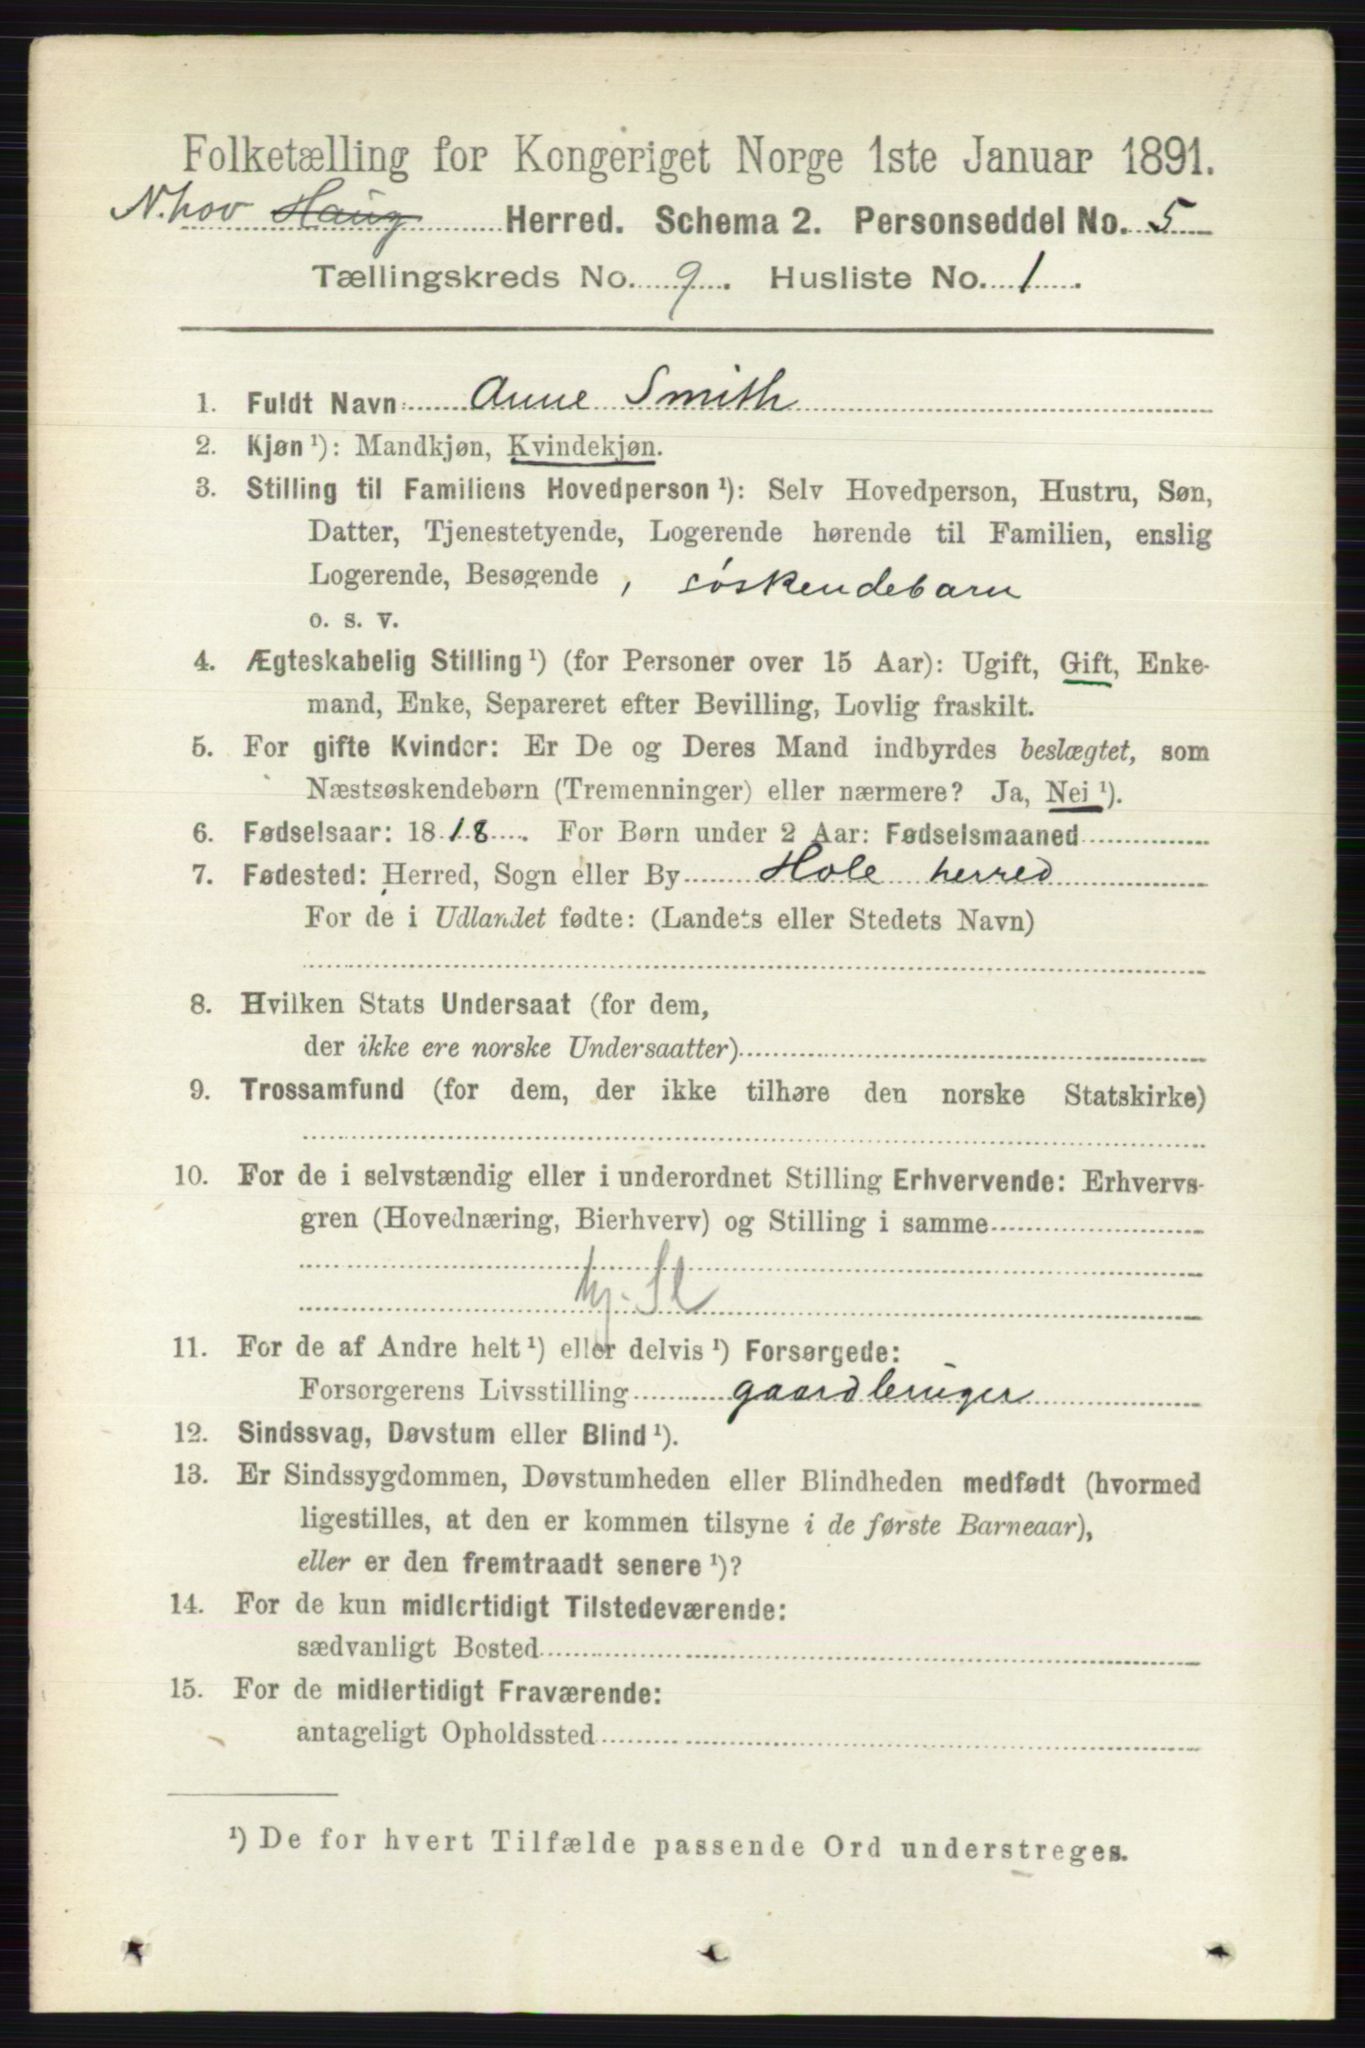 Folketælling for Kongeriget Norge 1ste Januar 1891.
N.hov Haug Herred. Schema 2. Personseddel No. 5
Tællingskreds No. 9. Husliste No. 1.
1. Fuldt Navn: Anne Smith
2. Kjøn ¹): Mandkjøn, Kvindekjøn.
3. Stilling til Familiens Hovedperson ¹): Selv Hovedperson, Hustru, Søn,
Datter, Tjenestetyende, Logerende hørende til Familien, enslig
Logerende, Besøgende , søskendebarn
o. s. v.
4. Ægteskabelig Stilling ¹) (for Personer over 15 Aar): Ugift, Gift, Enke-
mand, Enke, Separeret efter Bevilling, Lovlig fraskilt.
5. For gifte Kvinder: Er De og Deres Mand indbyrdes beslægtet, som
Næstsøskendebørn (Tremenninger) eller nærmere? Ja, Nei ¹).
6. Fødselsaar: 1818. For Børn under 2 Aar: Fødselsmaaned
7. Fødested: Herred, Sogn eller By Hole herred
For de i Udlandet fødte: (Landets eller Stedets Navn)
8. Hvilken Stats Undersaat (for dem,
der ikke ere norske Undersaatter)
9. Trossamfund (for dem, der ikke tilhøre den norske Statskirke)
10. For de i selvstændig eller i underordnet Stilling Erhvervende: Erhvervs-
gren (Hovednæring, Bierhverv) og Stilling i samme
hj. Sl
11. For de af Andre helt ¹) eller delvis ¹) Forsørgede:
Forsørgerens Livsstilling gaardbruger
12. Sindssvag, Døvstum eller Blind ¹).
13. Er Sindssygdommen, Døvstumheden eller Blindheden medfødt (hvormed
ligestilles, at den er kommen tilsyne i de første Barneaar),
eller er den fremtraadt senere ¹)?
14. For de kun midlertidigt Tilstedeværende:
sædvanligt Bosted
15. For de midlertidigt Fraværende:
antageligt Opholdssted
¹) De for hvert Tilfælde passende Ord understreges.